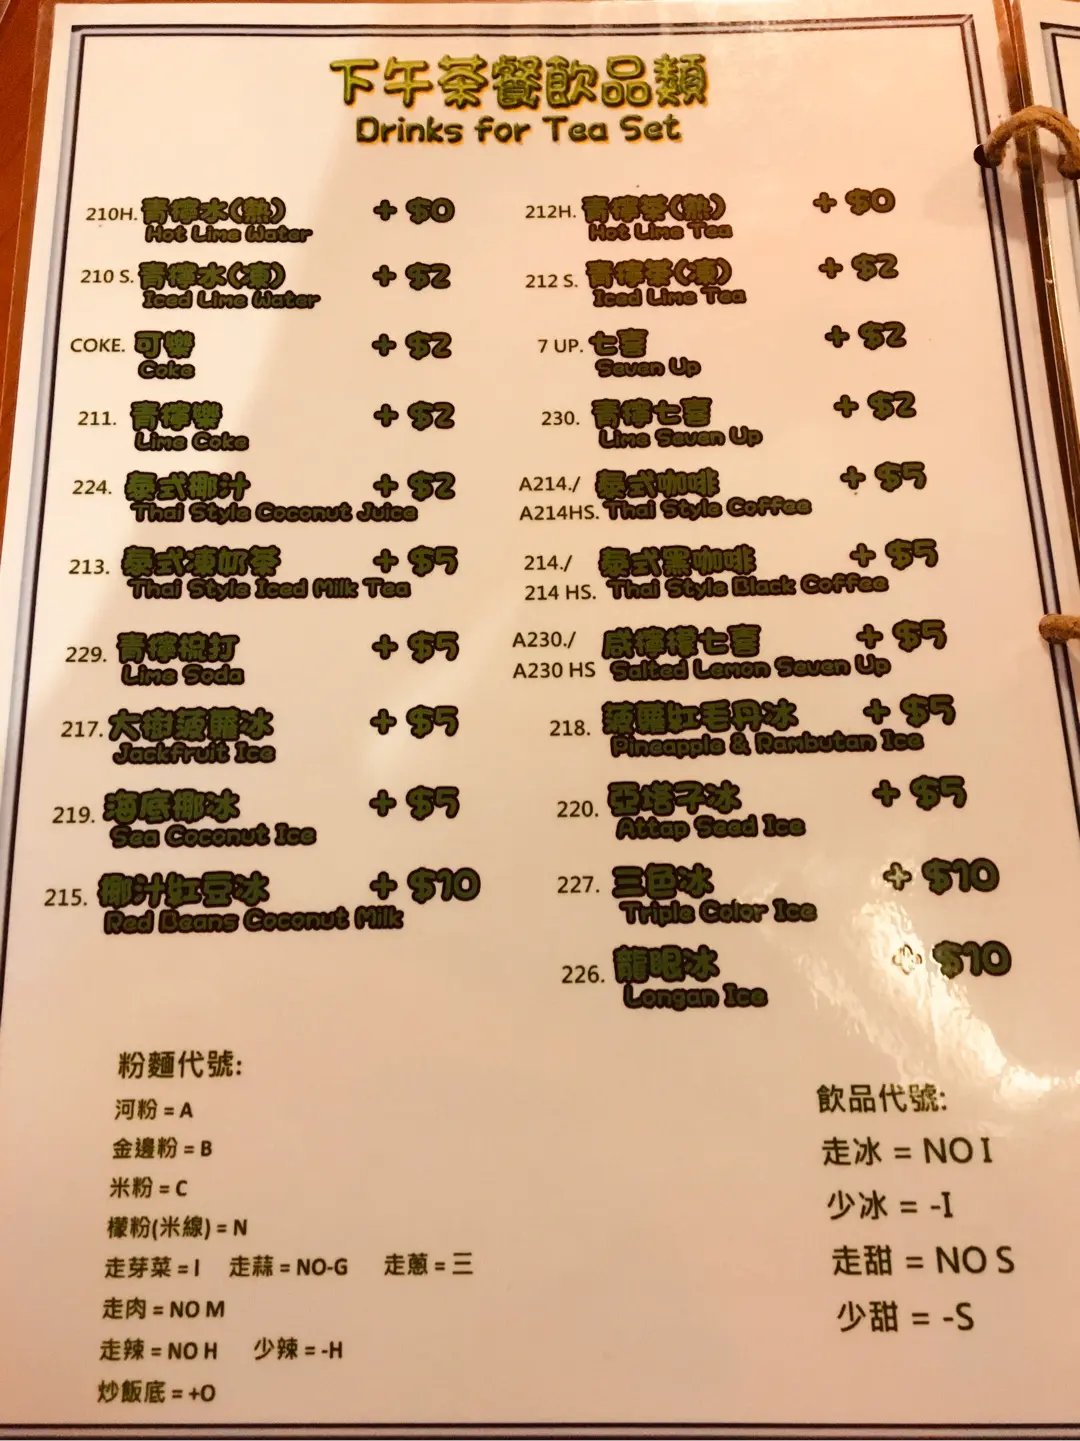 下午茶餐飲品類
Drinks for Tea Set
210H. 青檸水(熱) + $0
Hot Lime Water
210 S. 青檸水(凍) + $2
Iced Lime Water
COKE. 可樂 + $2
Coke
211. 青檸樂 + $2
Lime Coke
224. 泰式椰汁 + $2
Thai Style Coconut Juice
213. 泰式凍奶茶 + $5
Thai Style Iced Milk Tea
229. 青檸梳打 + $5
Lime Soda
217. 大樹菠蘿冰 + $5
Jackfruit Ice
219. 海底椰冰 + $5
Sea Coconut Ice
215. 椰汁紅豆冰 + $10
Red Beans Coconut Milk
212H. 青檸茶(熱) + $0
Hot Lime Tea
212 S. 青檸茶(凍) + $2
Iced Lime Tea
7 UP. 七喜 + $2
Seven Up
230. 青檸七喜 + $2
Lime Seven Up
A214./ 泰式咖啡 + $5
A214HS. Thai Style Coffee
214./ 泰式黑咖啡 + $5
214 HS. Thai Style Black Coffee
A230./ 咸檸檬七喜 + $5
A230 HS Salted Lemon Seven Up
218. 菠蘿紅毛丹冰 + $5
Pineapple & Rambutan Ice
220. 亞塔子冰 + $5
Attap Seed Ice
227. 三色冰 + $10
Triple Color Ice
226. 龍眼冰 + $10
Longan Ice
粉麵代號:
河粉 = A
金邊粉 = B
米粉 = C
檬粉(米線) = N
走芽菜 = I 走蒜 = NO-G 走蔥 = 三
走肉 = NO M
走辣 = NO H 少辣 = -H
炒飯底 = +O
飲品代號:
走冰 = NO I
少冰 = -I
走甜 = NO S
少甜 = -S